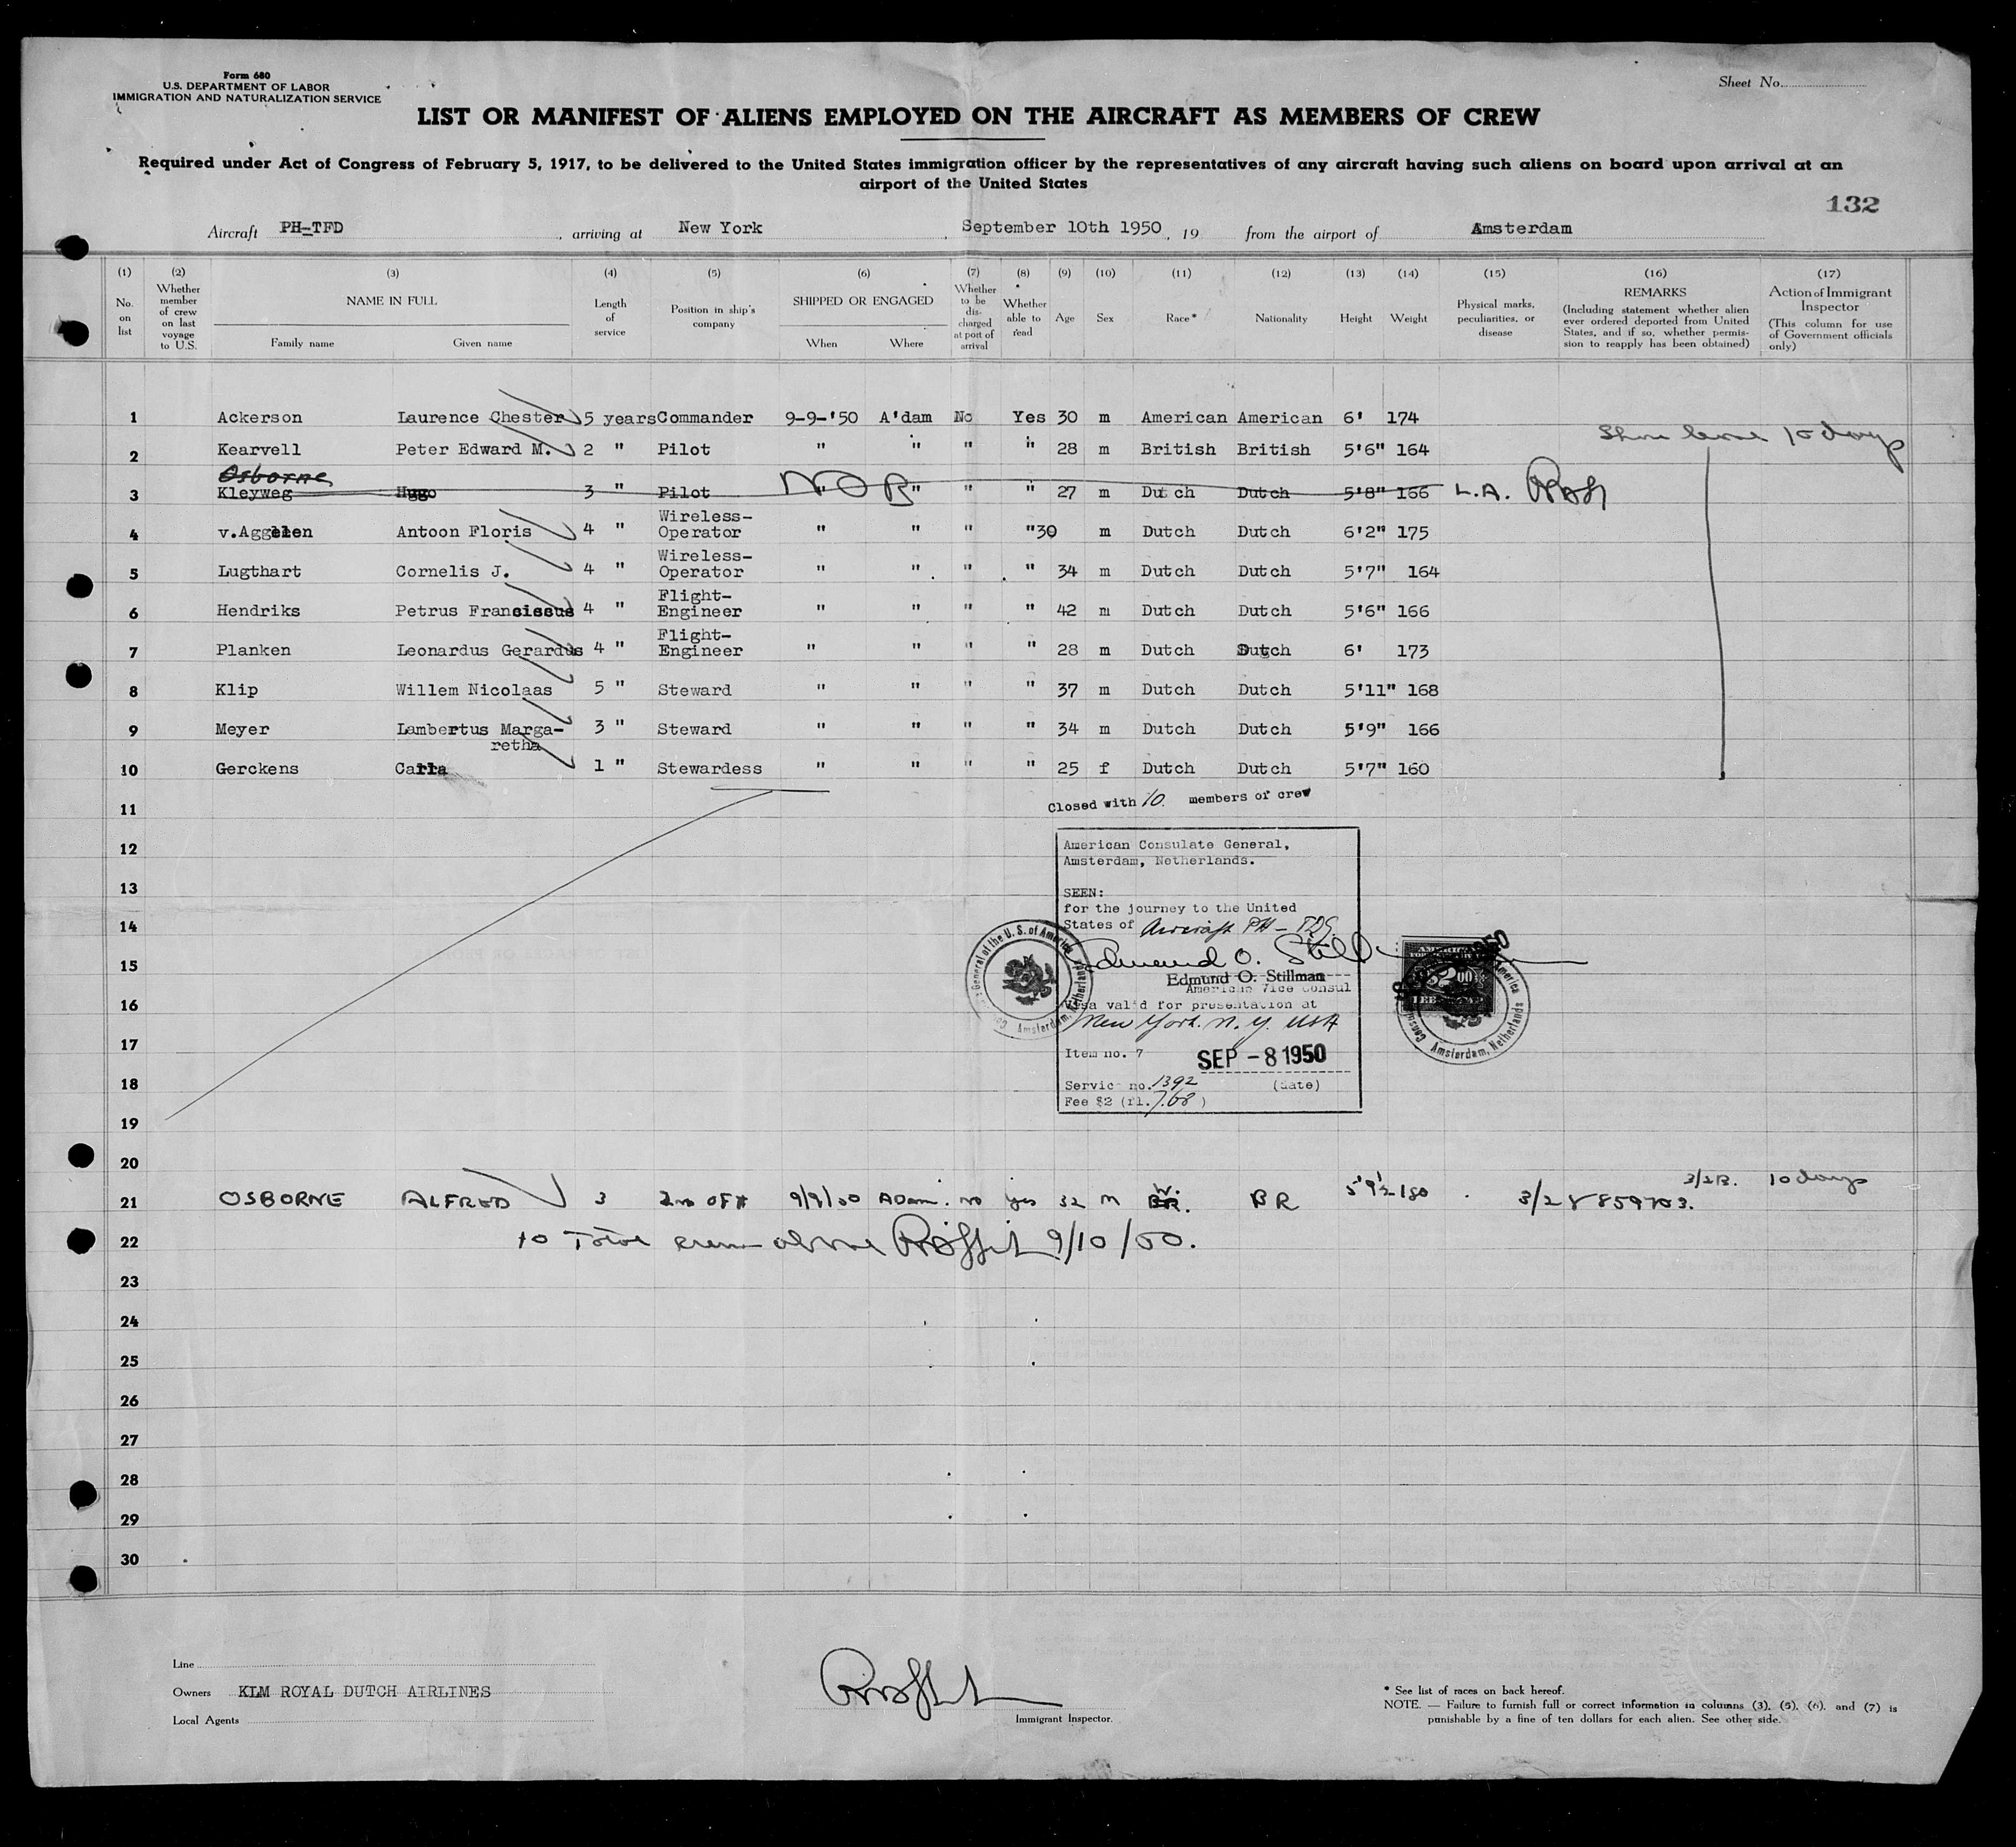 Form 680
U.S. DEPARTMENT OF LABOR
IMMIGRATION AND NATURALIZATION SERVICE
Sheet No.
LIST OR MANIFEST OF ALIENS EMPLOYED ON THE AIRCRAFT AS MEMBERS OF CREW
Required under Act of Congress of February 5, 1917, to be delivered to the United States immigration officer by the representatives of any aircraft having such aliens on board upon arrival at an
airport of the United States
132
Aircraft PH-TFD, arriving at New York, September 10th 1950, 19 from the airport of Amsterdam
(1) No. on list
(2) Whether member of crew on last voyage to U.S.
(3) NAME IN FULL Family name Given name
(4) Length of service
(5) Position in ship's company
(6) SHIPPED OR ENGAGED When Where
(7) Whether to be discharged at port of arrival
(8) Whether able to read
(9) Age
(10) Sex
(11) Race*
(12) Nationality
(13) Height
(14) Weight
(15) Physical marks, peculiarities, or disease
(16) REMARKS (Including statement whether alien ever ordered deported from United States, and if so, whether permission to reapply has been obtained)
(17) Action of Immigrant Inspector (This column for use of Government officials only)
1 Ackerson Laurence Chester 5 years Commander 9-9-'50 A'dam No Yes 30 m American American 6' 174
Shore leave 10 days
2 Kearvell Peter Edward M. 2 " Pilot " " " " 28 m British British 5'6" 164
Osborne
3 Kleyweg Hugo 3 " Pilot N.O.B " " " 27 m Dutch Dutch 5'8" 166 L.A.
4 v.Aggelen Antoon Floris 4 " Wireless-Operator " " " " 30 m Dutch Dutch 6'2" 175
5 Lugthart Cornelis J. 4 " Wireless-Operator " " " " 34 m Dutch Dutch 5'7" 164
6 Hendriks Petrus Francissus 4 " Flight-Engineer " " " " 42 m Dutch Dutch 5'6" 166
7 Planken Leonardus Gerardus 4 " Flight-Engineer " " " " 28 m Dutch Dutch 6' 173
8 Klip Willem Nicolaas 5 " Steward " " " " 37 m Dutch Dutch 5'11" 168
9 Meyer Lambertus Marga-retha 3 " Steward " " " " 34 m Dutch Dutch 5'9" 166
10 Gerckens Carla 1 " Stewardess " " " " 25 f Dutch Dutch 5'7" 160
Closed with 10. members of crew
11
12
13
14
15
16
17
18
19
20
American Consulate General,
Amsterdam, Netherlands.
SEEN:
for the journey to the United
States of Aircraft PH-
Edmund O. Stillman
American Vice Consul
Visa valid for presentation at
New York. N.Y. USA
Item no. 7 SEP - 8 1950
Service no. 1392 (date)
Fee $2 (fl. 7.68)
Consulate General of the U.S. of America
Amsterdam, Netherlands
$2.00
Amsterdam, Netherlands
3/2B. 10 days
21 OSBORNE ALFRED 3 2nd OFF 9/9/50 ADam. no yes 32 M W. BR. BR 5'9½ 180 3/2 8859703.
22 10 Total crew above 9/10/50.
23
24
25
26
27
28
29
30
Line
Owners KLM ROYAL DUTCH AIRLINES
Local Agents
Immigrant Inspector.
* See list of races on back hereof.
NOTE. — Failure to furnish full or correct information in columns (3), (5), (6), and (7) is
punishable by a fine of ten dollars for each alien. See other side.